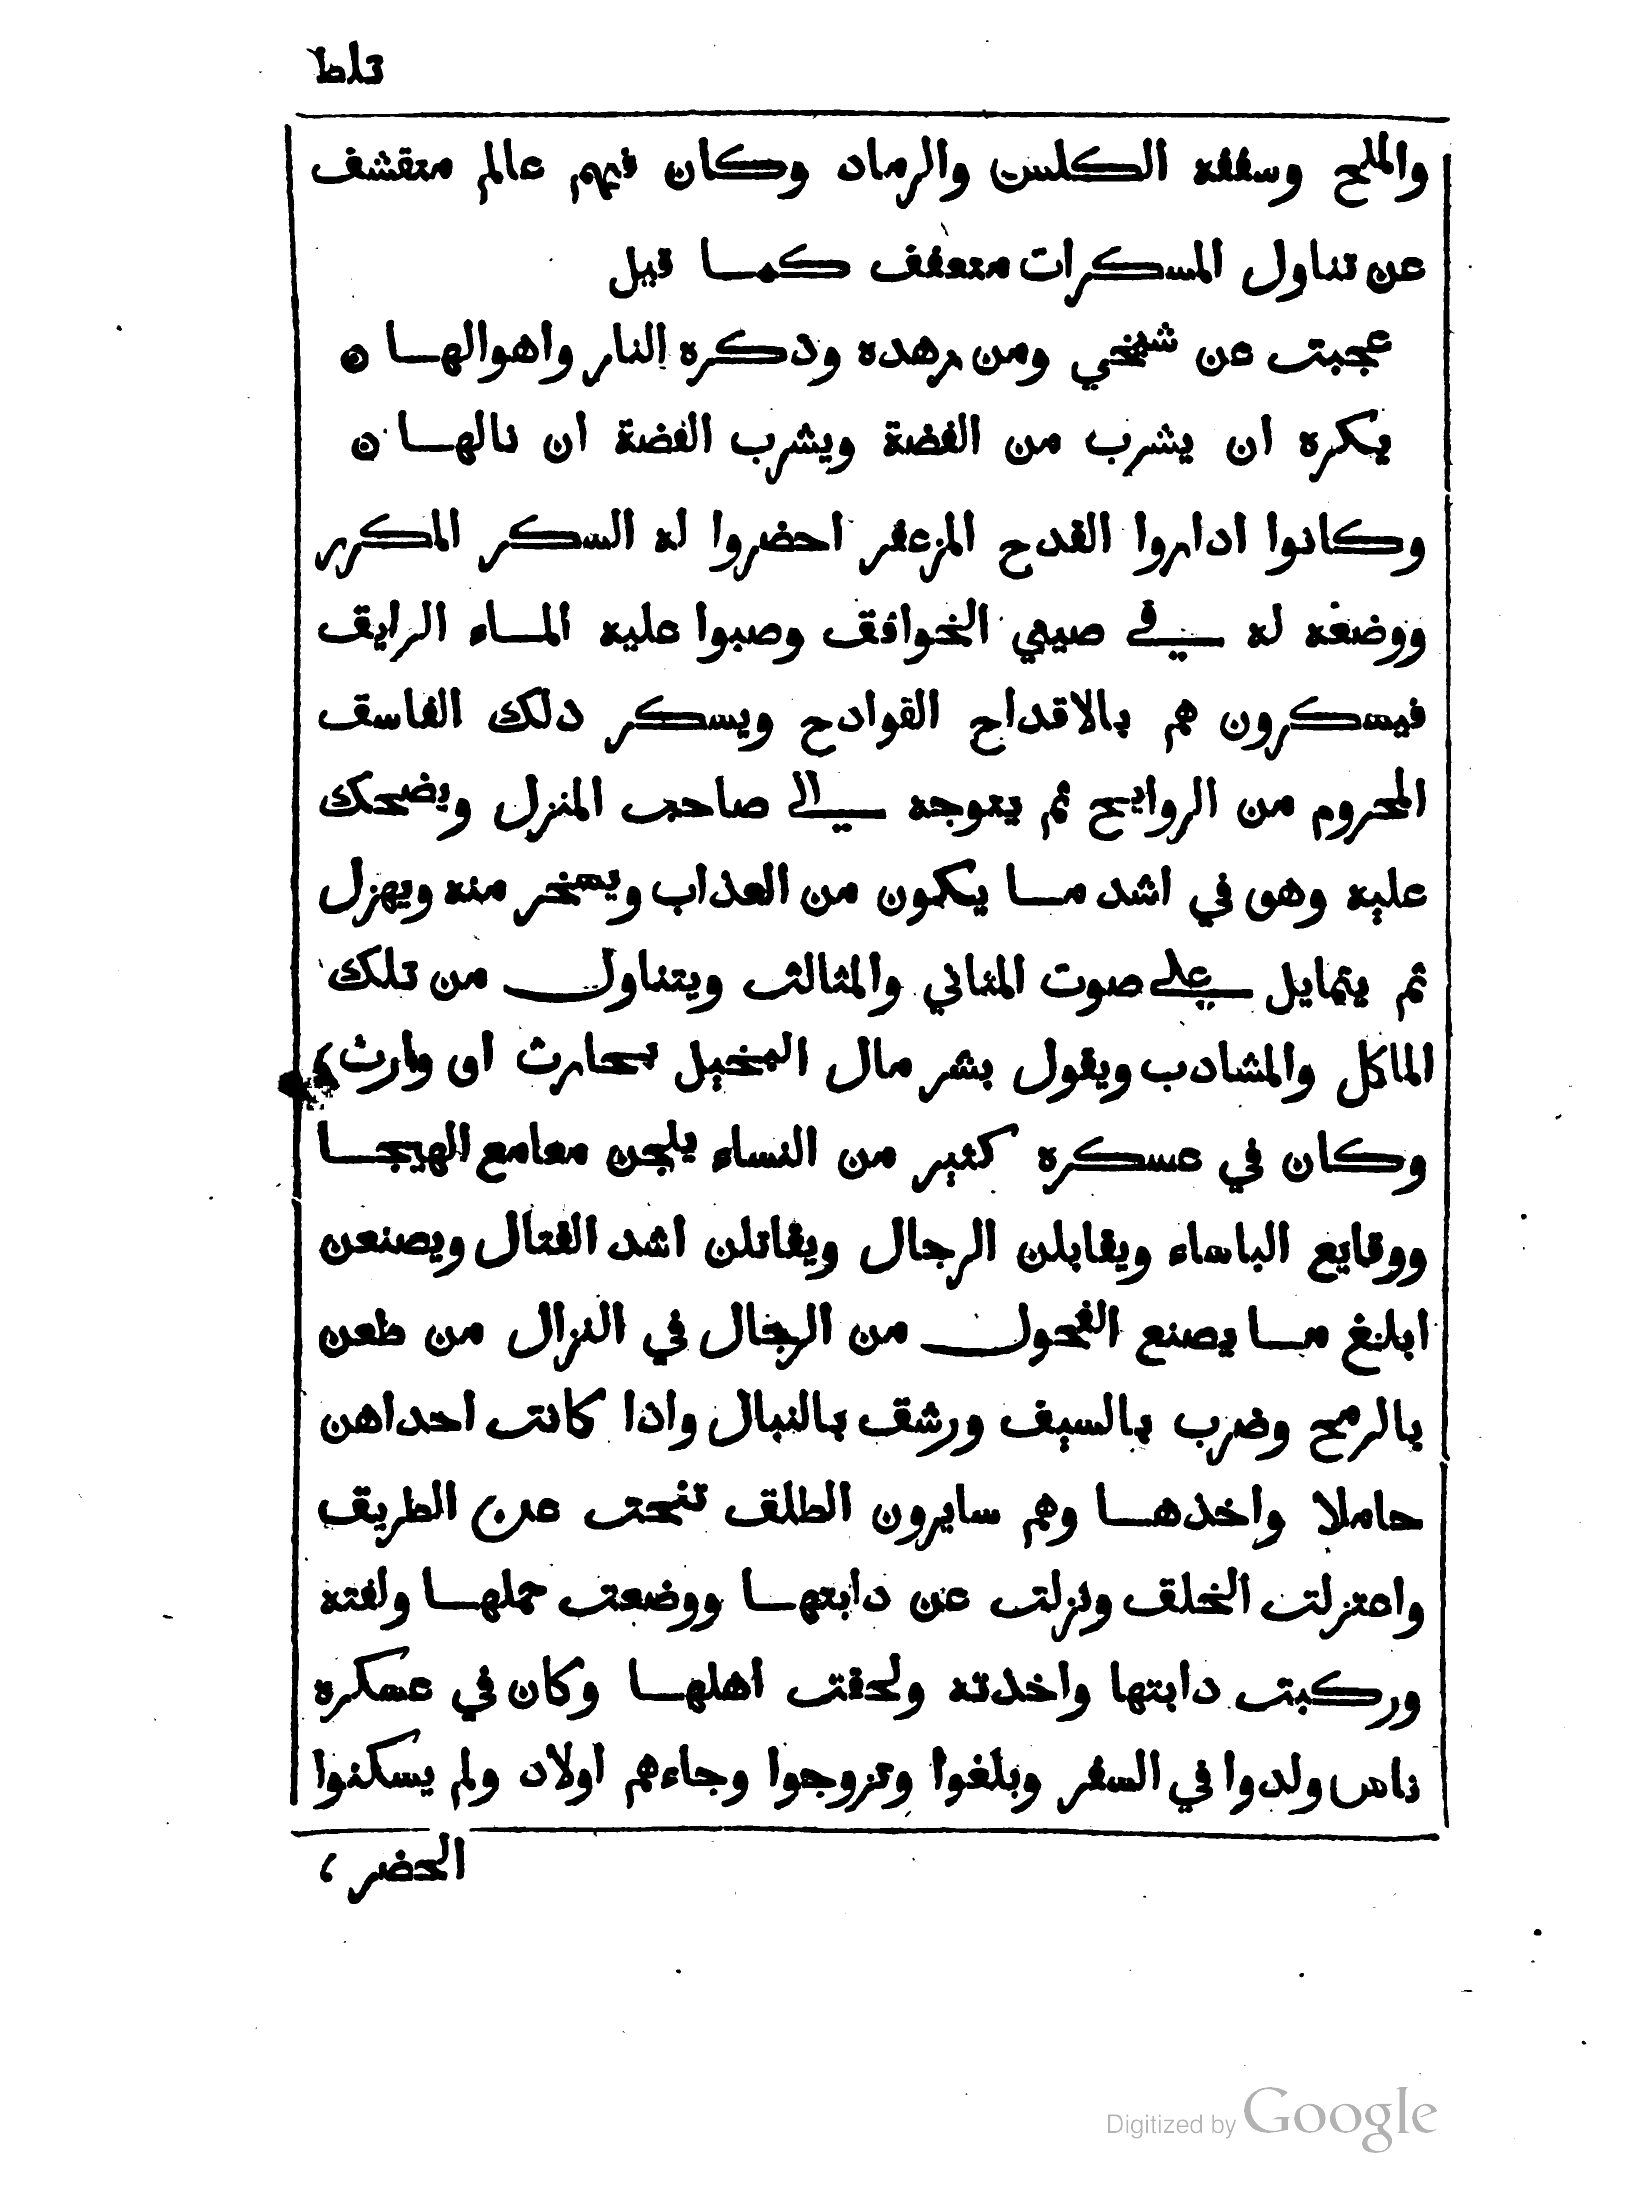 تلط
والملح وسففه الكلس والرماد وكان فيهم عالم متقشف
عن تناول المسكرات متعفف كمـــا قيل
عجبت عن شيخي ومن زهده وذكره النار واهوالهـــا ه
يكره ان يشرب من الفضة ويشرب الفضة ان نالهـــا ه
وكانوا اداروا القدح المزعفر احضروا له السكر المكرر
ووضعه له في صيني الخوافق وصبوا عليه المـــاء الرايق
فيسكرون هم بالاقداح القوادح ويسكر ذلك الفاسق
المحروم من الروايح ثم يتوجه الى صاحب المنزل ويضحك
عليه وهو في اشد مـــا يكون من العذاب ويسخر منه ويهزل
ثم يتمايل على صوت المثاني والمثالث ويتناول من تلك
الماكل والمشادب ويقول بشر مال البخيل بحارث او وارث،
وكان في عسكره كثير من النساء يلجن معامع الهيجـــا
ووقايع الباساء ويقابلن الرجال ويقاتلن اشد القتال ويصنعن
ابلغ مـــا يصنع الفحول من الرجال في النزال من طعن
بالرمح وضرب بالسيف ورشق بالنبال واذا كانت احداهن
حاملا واخذهـــا وهم سايرون الطلق تنحت عن الطريق
واعتزلت الخلق ونزلت عن دابتهـــا ووضعت حملهـــا ولفته
وركبت دابتها واخذته ولحقت اهلهـــا وكان في عسكره
ناس ولدوا في السفر وبلغوا وتزوجوا وجاءهم اولاد ولم يسكنوا
الحضر ،
Digitized by Google